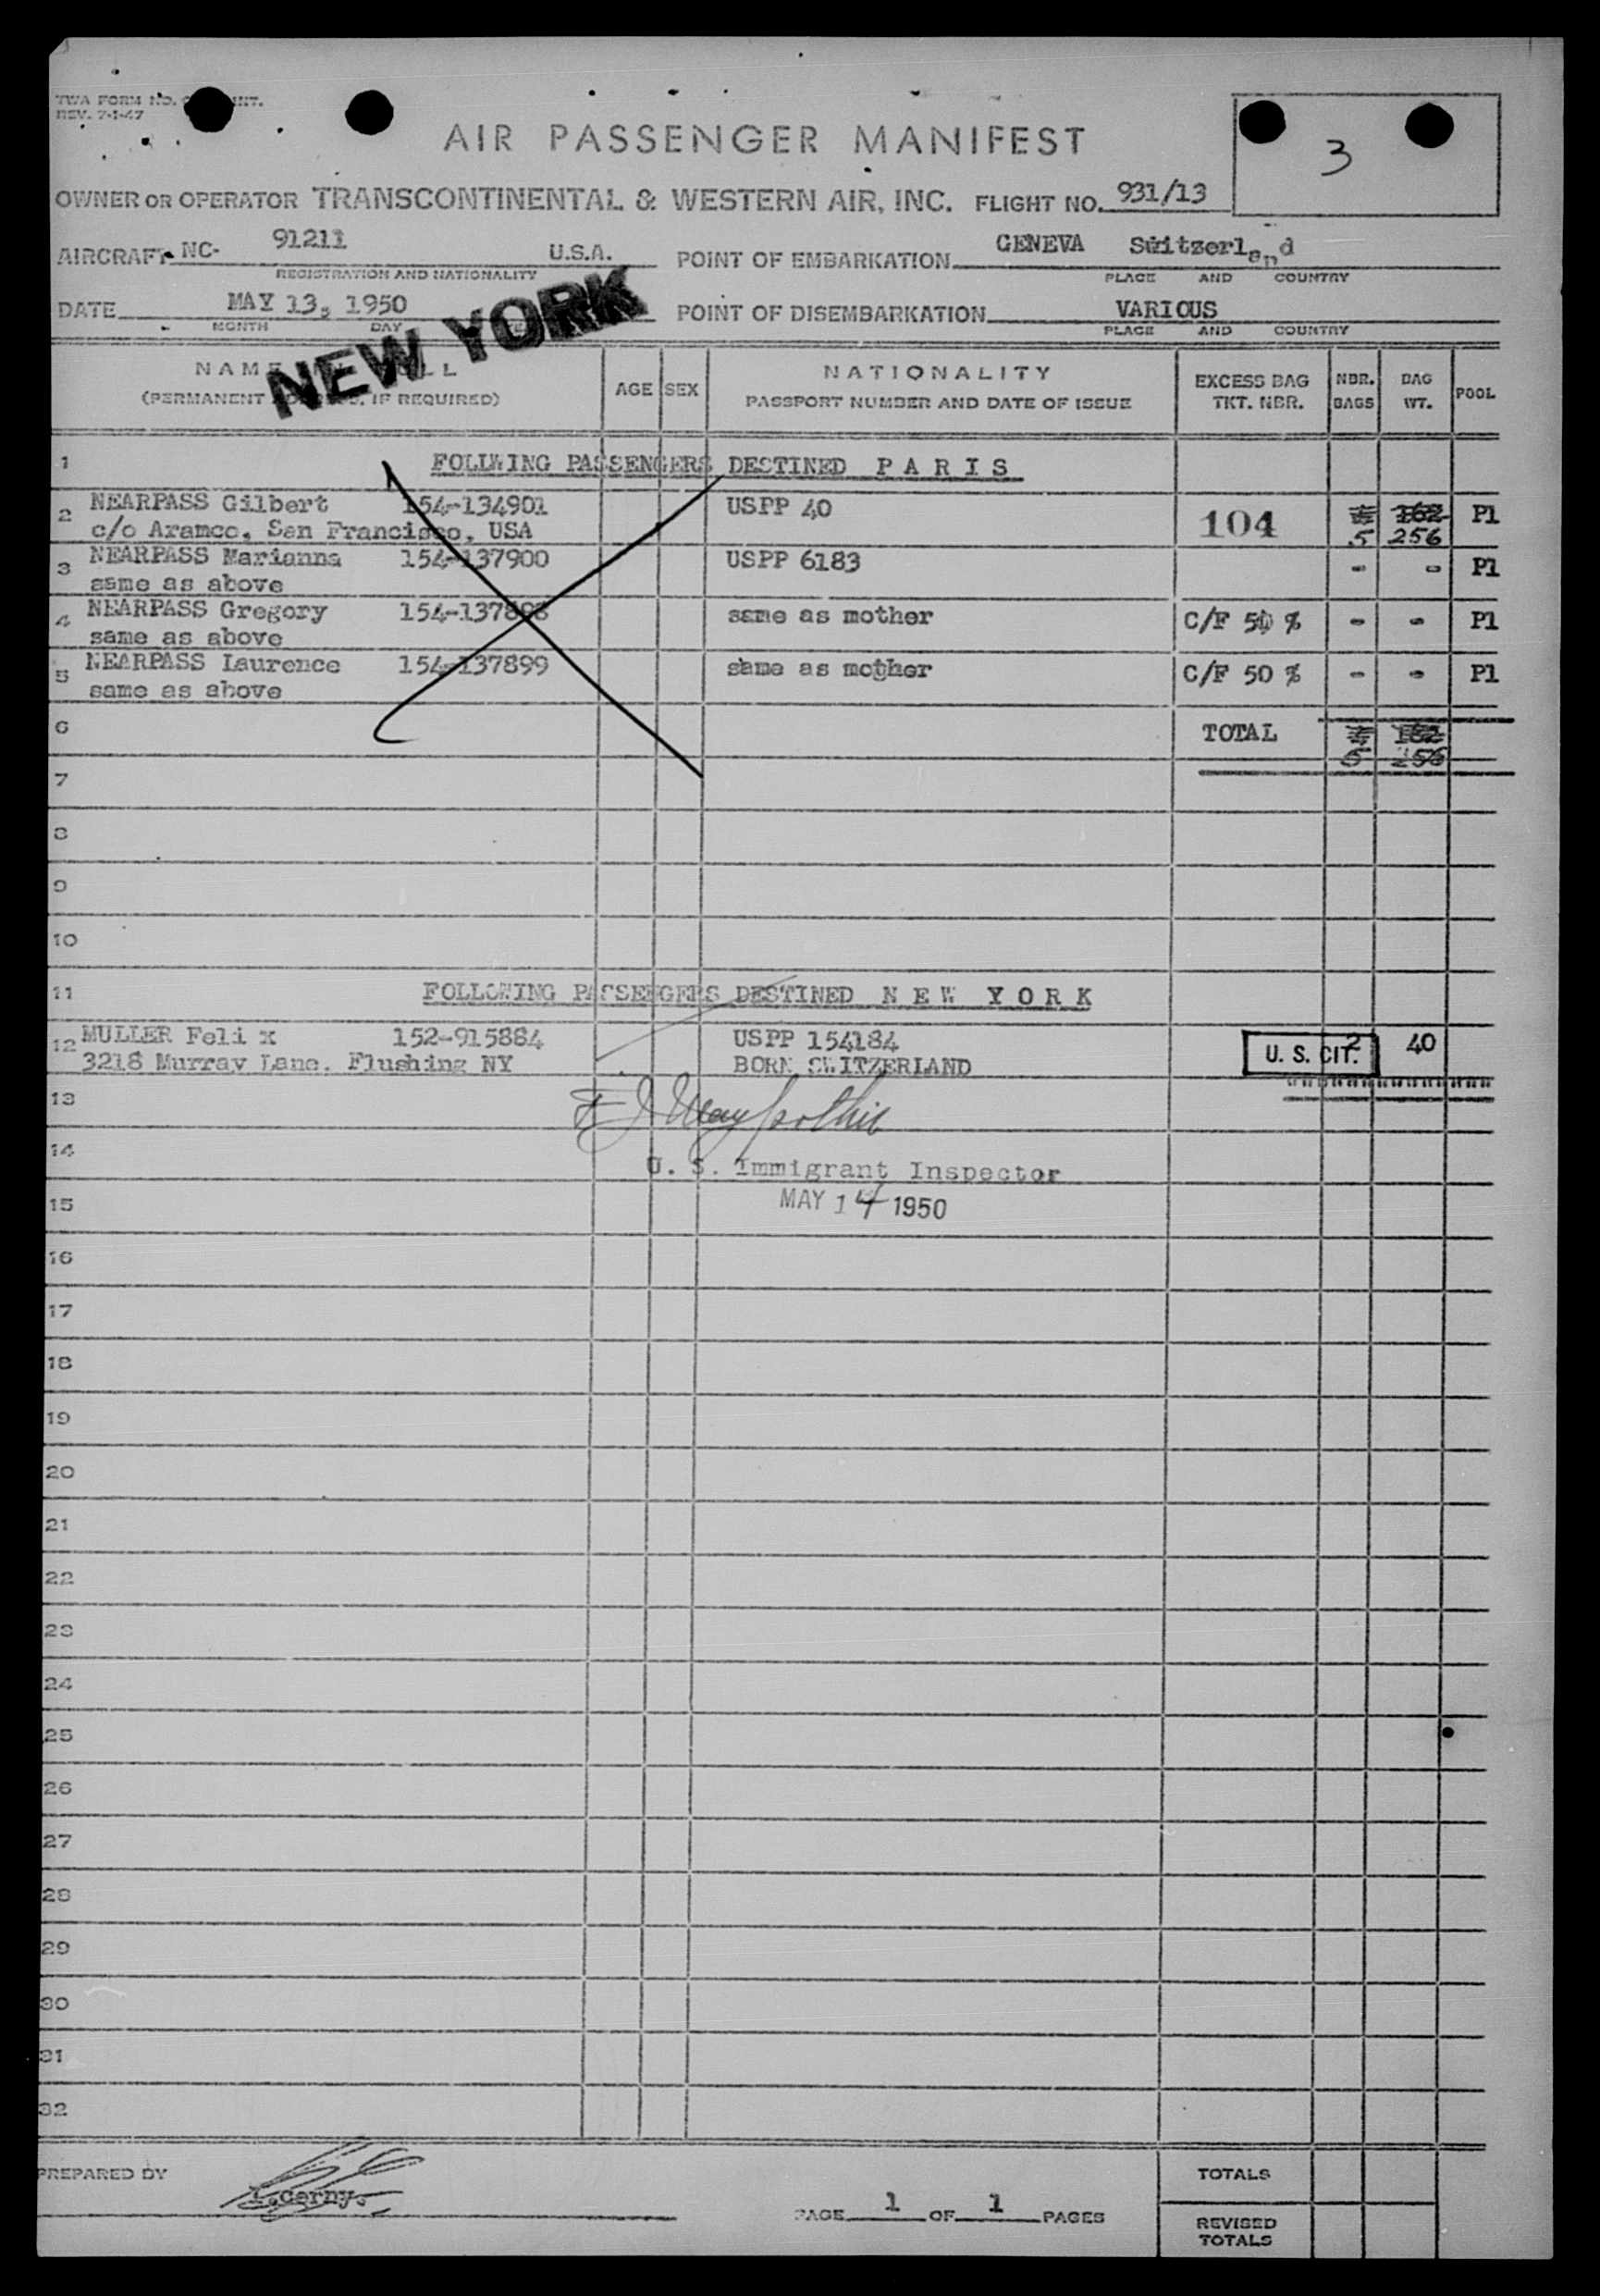 TWA FORM NO. INT.
REV. 7-1-47
AIR PASSENGER MANIFEST
3
OWNER OR OPERATOR TRANSCONTINENTAL & WESTERN AIR, INC. FLIGHT NO. 931/13
AIRCRAFT NC- 91211 U.S.A. POINT OF EMBARKATION GENEVA Switzerland
REGISTRATION AND NATIONALITY PLACE AND COUNTRY
DATE MAY 13, 1950 POINT OF DISEMBARKATION VARIOUS
MONTH DAY PLACE AND COUNTRY
NEW YORK
NAME
(PERMANENT IF REQUIRED)
AGE SEX
NATIONALITY
PASSPORT NUMBER AND DATE OF ISSUE
EXCESS BAG
TKT. NBR.
NBR.
BAGS
BAG
WT.
POOL
1 FOLLWING PASSENGERS DESTINED P A R I S
2 NEARPASS Gilbert 154-134901 USPP 40 104 162 P1
c/o Aramco, San Francisco, USA 5 256
3 NEARPASS Marianna 154-137900 USPP 6183 - - P1
same as above
4 NEARPASS Gregory 154-137898 same as mother C/F 50 % - - P1
same as above
5 NEARPASS Laurence 154-137899 same as mother C/F 50 % - - P1
same as above
6 TOTAL 162
5 256
7
8
9
10
11 FOLLOWING PASSENGERS DESTINED N E W Y O R K
12 MULLER Feli x 152-915884 USPP 154184 U. S. CIT. 2 40
3218 Murray Lane. Flushing NY BORN SWITZERLAND
13
14 U. S. Immigrant Inspector
15 MAY 14 1950
16
17
18
19
20
21
22
23
24
25
26
27
28
29
30
31
32
PREPARED BY
I.Cerny.
PAGE 1 OF 1 PAGES
TOTALS
REVISED
TOTALS